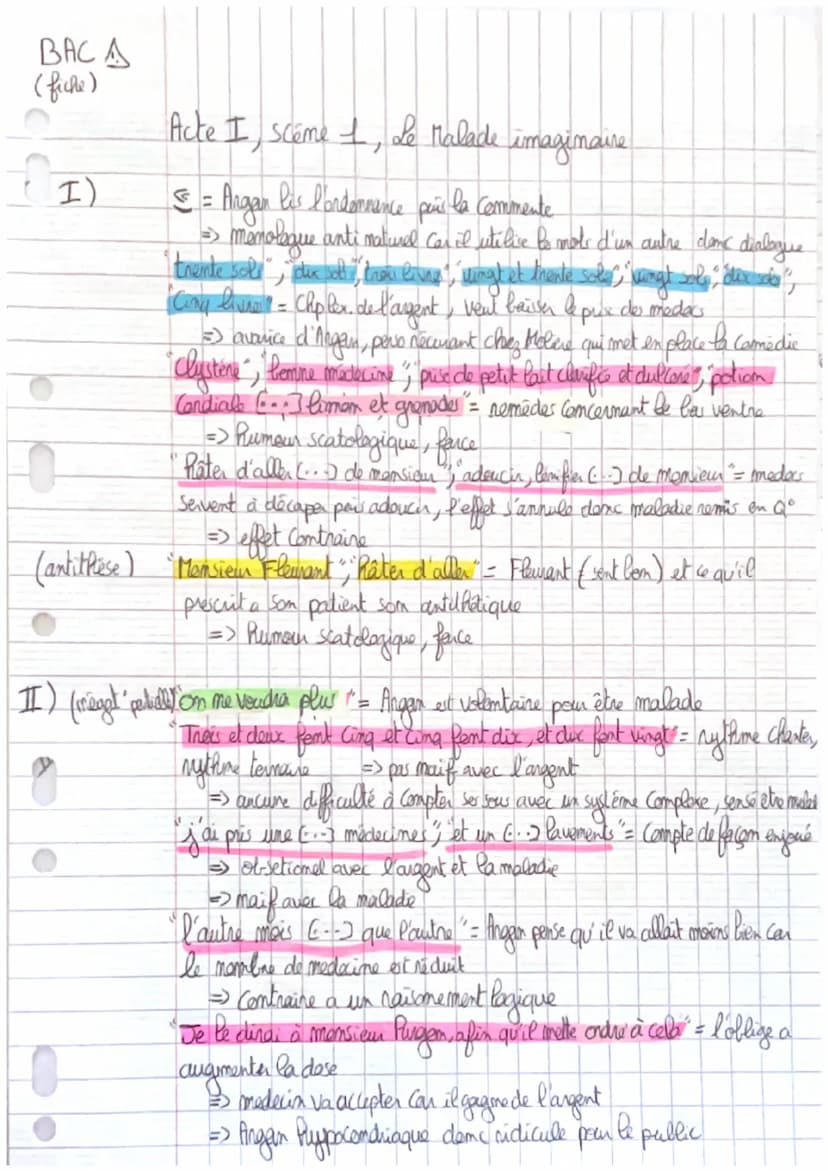 BAC ⚠
(fiche)
Acte I, scème 1, Le Malade imaginaire
I) = Argan lis l'ordonnance puis la commente
=> monologue anti naturel car il utilise les mots d'un autre donc dialogue
"trente sols", "dix sols", "trois livre", "vingt et trente sols", "vingt sols", "dix sols",
"Cinq livres" = Chp lex. de l'argent, veut baisser le prix des medocs
=> avarice d'Argan, perso récurant chez Molière qui met en place la comédie
"Clystère", "bonne médecine", "prise de petit lait clarifié et dulcoré", "potion
cordiale [...] limon et grenades" = remèdes concernant le bas ventre
=> Humour scatologique, farce
"Hâter d'aller (...) de monsieur", "adoucir, lénifier (...) de monsieur" = medocs
servent à décaper puis adoucir, l'effet s'annule donc maladie remis en Q°
=> effet contraire
(antithèse) "Monsieur Fleurant", "Hâter d'aller" = Fleurant (sent bon) et ce qu'il
prescrit a son patient son antithétique
=> Humour scatologique, farce
II) (négat° partielle) "on me voudra plus" = Argan est volontaire pour être malade
"Trois et deux font cinq et cinq font dix, et dix font vingt" = rythme chanter,
rythme ternaire => pas naif avec l'argent
=> aucune difficulté à compter ses sous avec un système complexe, sensé etre malade
"j'ai pris une [...] médecines", "et un (...) lavements" = compte de façon enjoué
=> obsetionel avec l'argent et la maladie
=> naif avec la maladie
"l'autre mois [...] que l'autre" = Argan pense qu'il va allait moins bien car
le nombre de medecine est réduit
=> Contraire a un raisonement logique
"Je le dirai à monsieur Purgon, afin qu'il mette ordre à cela" = l'oblige a
augmenter la dose
=> medecin va accepter car il gagne de l'argent
=> Argan hypocondriaque donc ridicule pour le public